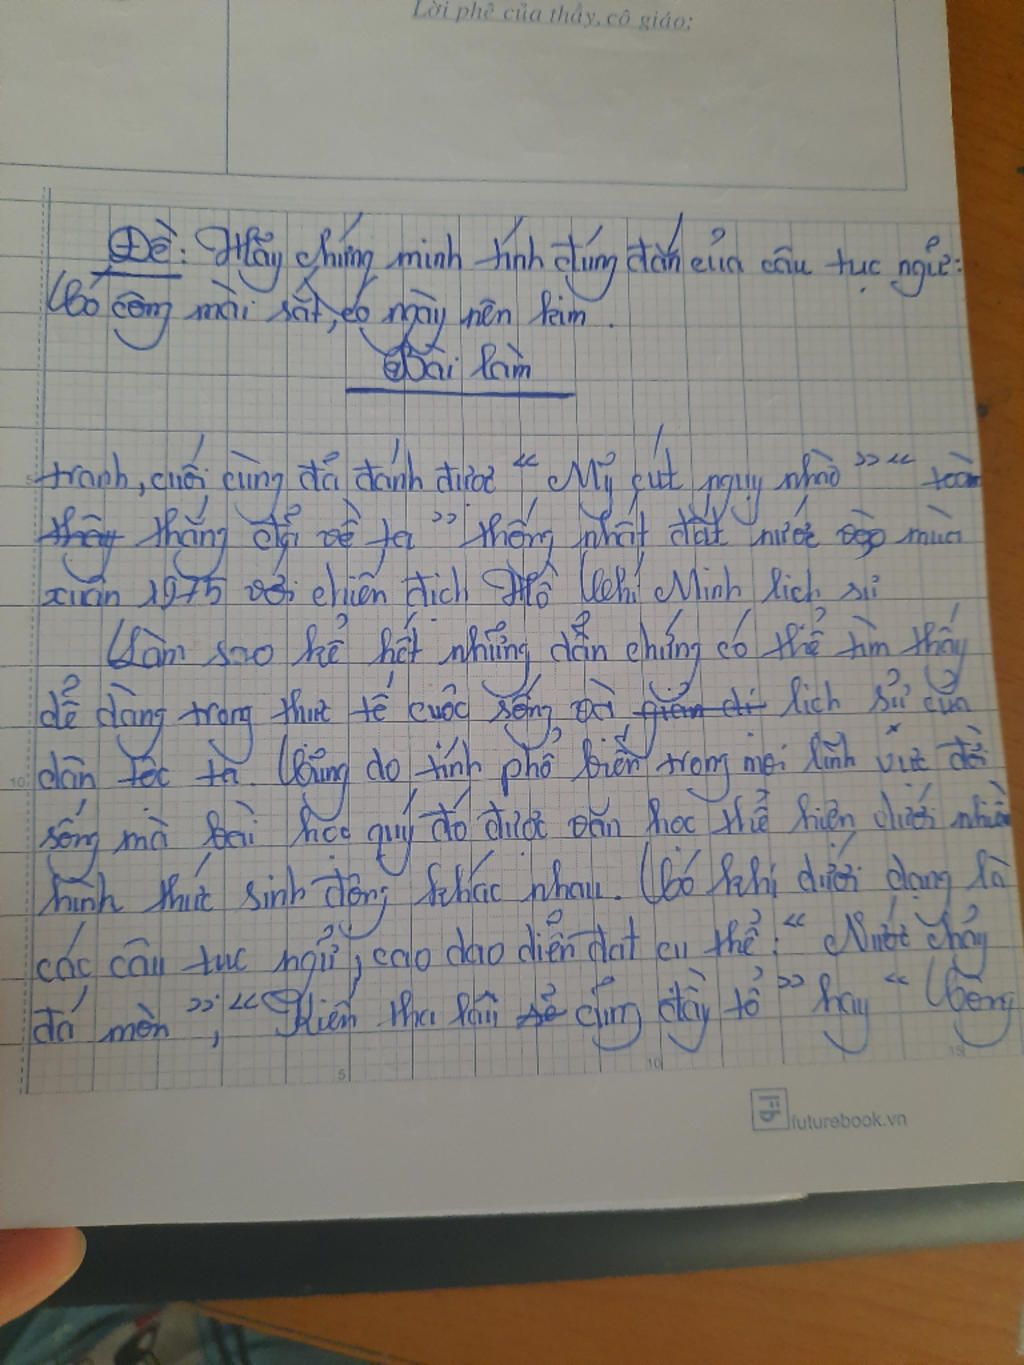 Lời phê của thầy, cô giáo:
Đề: Hãy chứng minh tính đúng đắn của câu tục ngữ:
Có công mài sắt, có ngày nên kim.
Bài làm
tranh, cuối cùng đã đánh được “Mỹ cút ngụy nhào” “toàn
thắng đã về ta” thống nhất đất nước mùa
xuân 1975 với chiến dịch Hồ Chí Minh lịch sử
Làm sao kể hết những dẫn chứng có thể tìm thấy
dễ dàng trong thực tế cuộc sống và giản dị lịch sử của
dân tộc ta. Cũng do tính phổ biến trong mọi lĩnh vực đời
sống mà bài học quý đó được văn học thể hiện dưới nhiều
hình thức sinh động khác nhau. Có khi dưới dạng là
các câu tục ngữ, cao dao diễn đạt cụ thể: “Nước chảy
đá mòn”; “Kiến tha lâu cũng đầy tổ” hay “Công
5
10
15
5
10
futurebook.vn